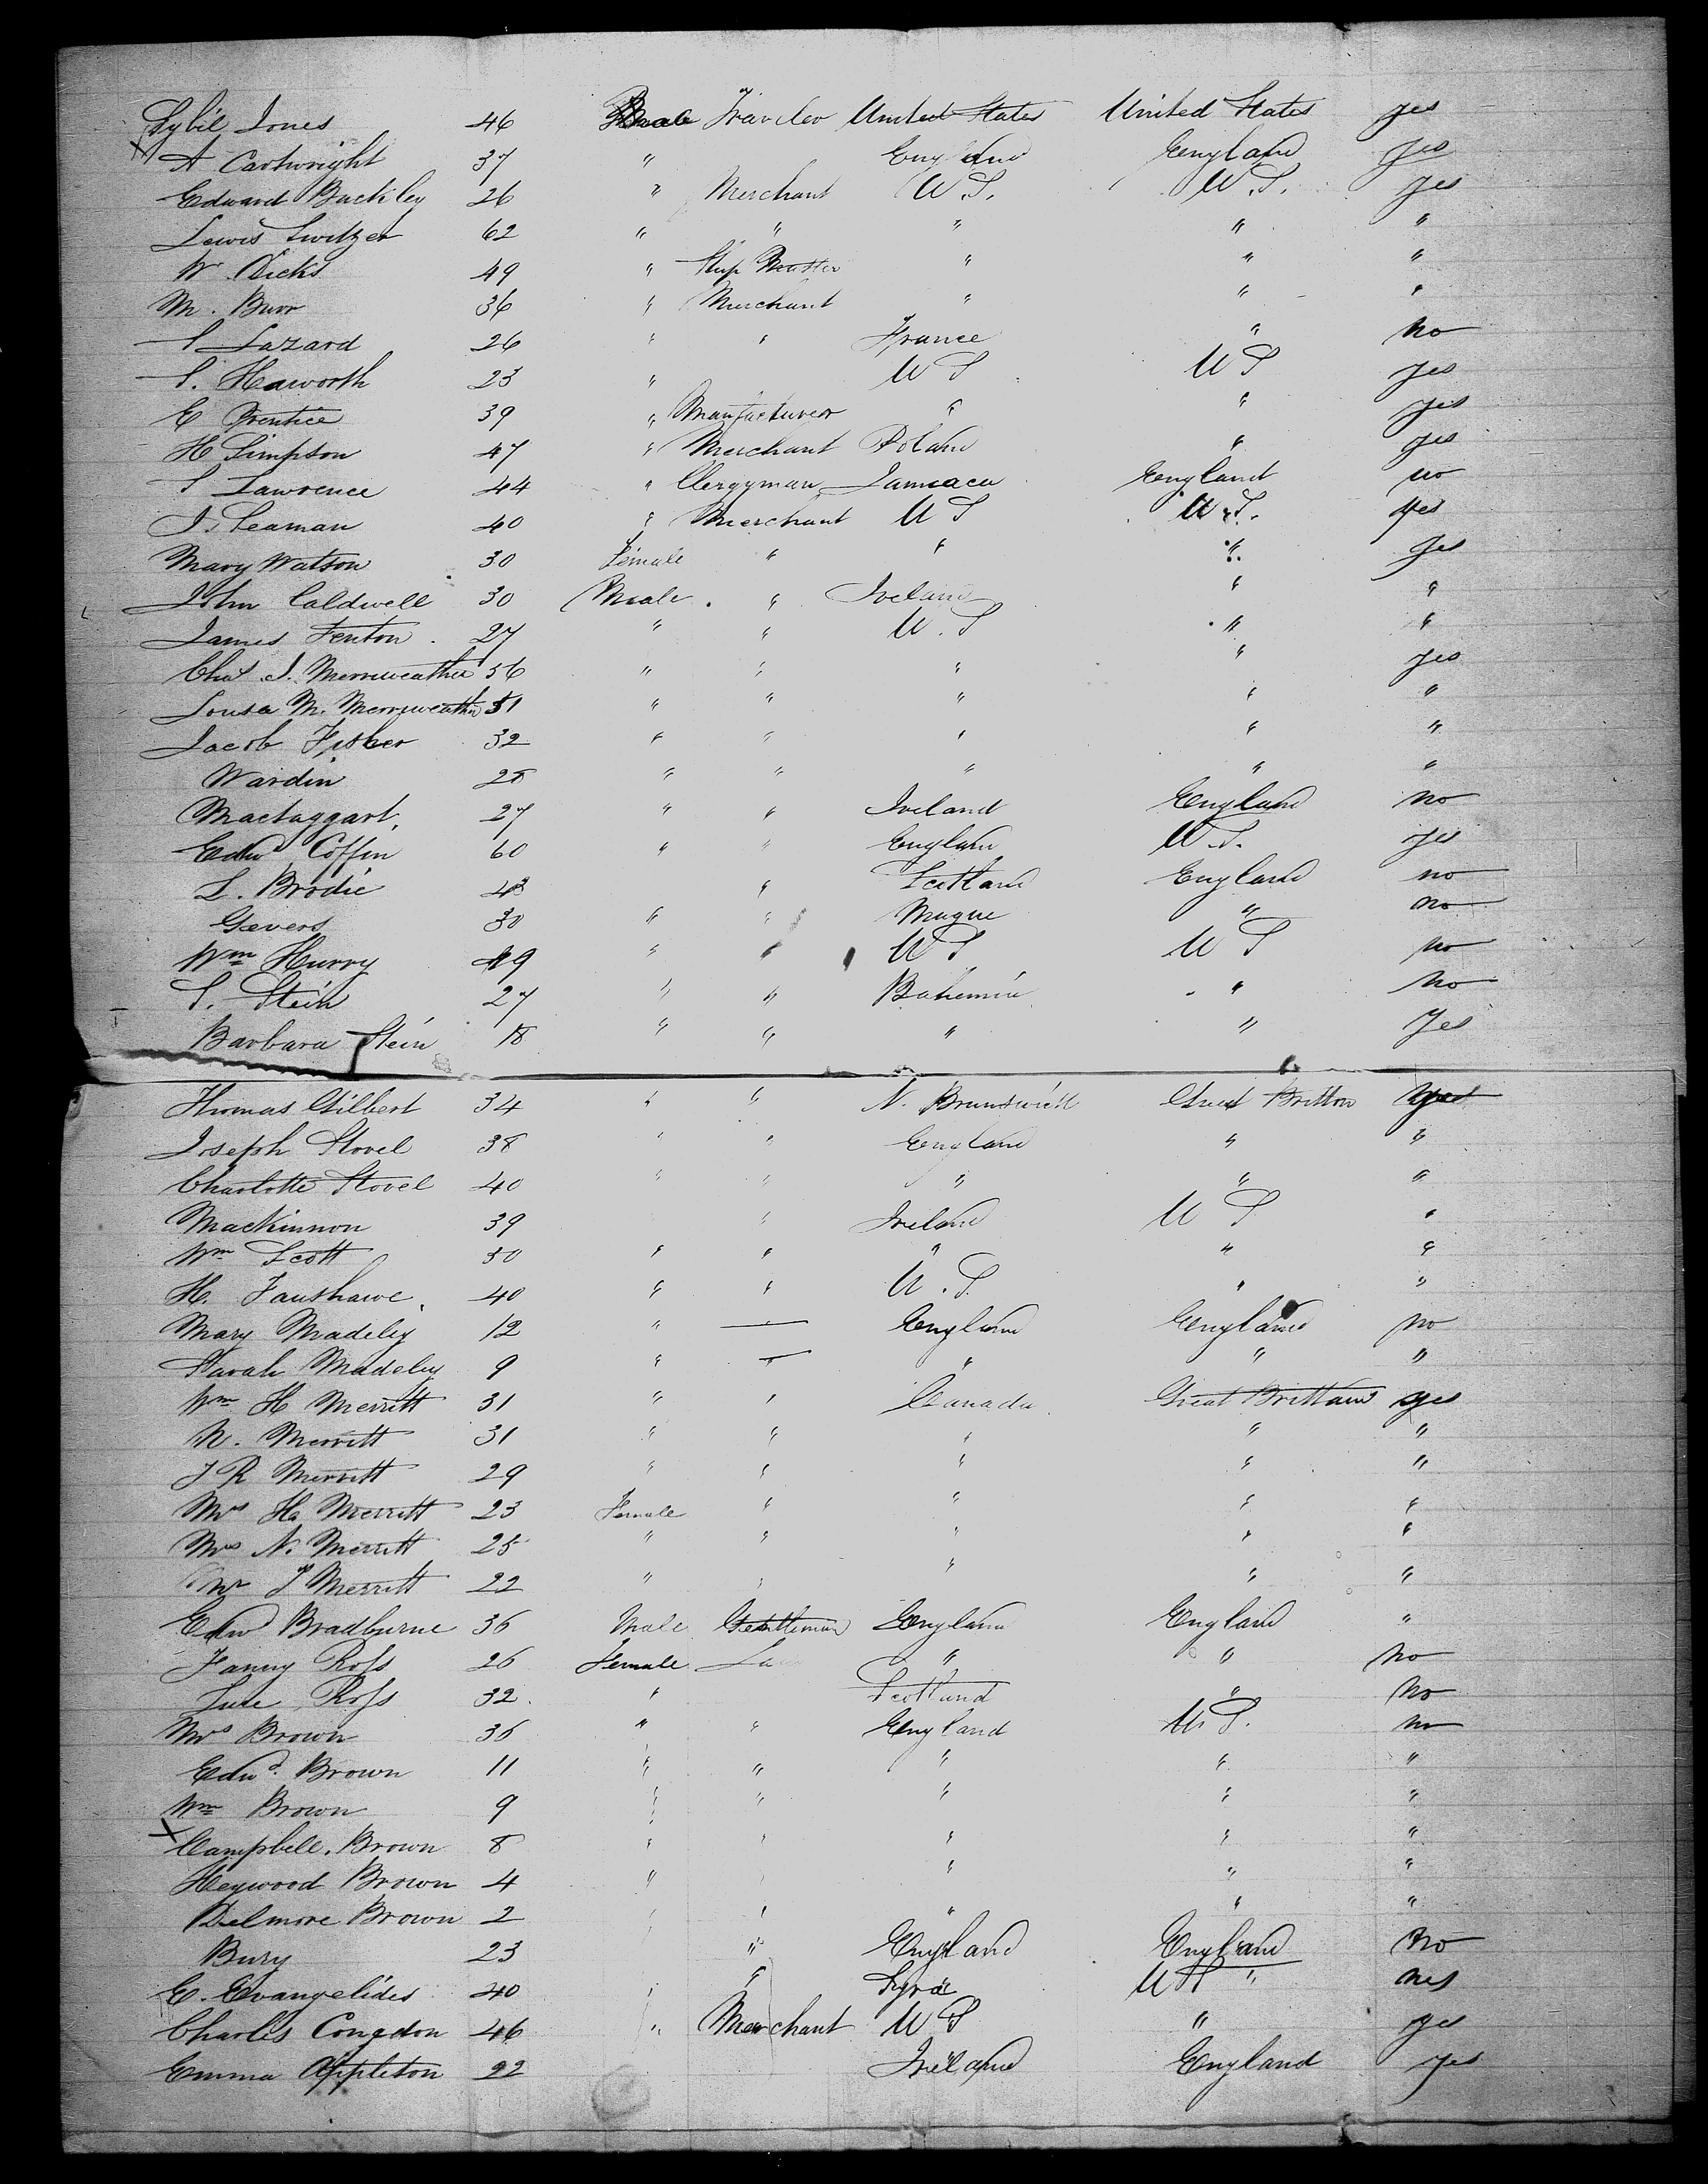 Sybil Jones 46 Female Traveler United States United States yes
A Cartwright 37 " England England yes
Edward Buckley 26 " Merchant U.S. U.S. yes
Lewis Switzer 62 " " " " "
W. Dicks 49 " Ship Master " " "
M. Burr 36 " Merchant " " "
S Lazard 26 " " France " no
S. Haworth 23 " U S U S yes
E Prentice 39 " Manufacturer " " yes
H Simpson 47 " Merchant Poland " yes
S Lawrence 44 " Clergyman Jamaca England no
J. Seaman 40 " Merchant U S U.S. yes
Mary Watson 30 Female " " " yes
John Caldwell 30 Male " Ireland " "
James Fenton 27 " " U.S " "
Chas J. Merriweather 56 " " " " yes
Louisa M. Merriweather 51 " " " " "
Jacob Fisher 32 " " " " "
Wardin 28 " " " " "
Mactaggart 27 " " Ireland England no
Edwd Coffin 60 " " England U.S. yes
L. Brodie 43 " Scotland England no
Gevers 30 " " " no
Wm Hurry 49 " " U S U S no
S. Stein 27 " " Bohemia " no
Barbara Stein 18 " " " " Yes
Thomas Gilbert 34 " " N. Brunswick Great Britton yes
Joseph Stovel 38 " " England " "
Charlotte Stovel 40 " " " " "
Mackinnon 39 " Ireland U S "
Wm Scott 30 " " " " "
H. Fanshawe 40 " " U.S. " "
Mary Madeley 12 " — England England no
Sarah Madeley 9 " — " " "
Wm H Merritt 31 " " Canada Great Brittain yes
N. Merritt 31 " " " " "
J R Merritt 29 " " " " "
Mrs H. Merritt 23 Female " " " "
Mrs N. Merritt 25 " " " " "
Mrs J Merritt 22 " " " " "
Edw Bradburne 36 Male Gentleman England England "
Fanny Ross 26 Female " " no
Ross 32 " Scotland " no
Mrs Brown 36 " " England U.S. no
Edwd. Brown 11 " " " " "
Wm Brown 9 " " " " "
Campbell Brown 8 " " " " "
Heywood Brown 4 " " " "
Delmore Brown 2 " " " " "
Bury 23 " England England no
E. Evangelides 40 " " Syra U S " yes
Charles Congdon 46 " Merchant U S " yes
Emma Appleton 22 Ireland England yes